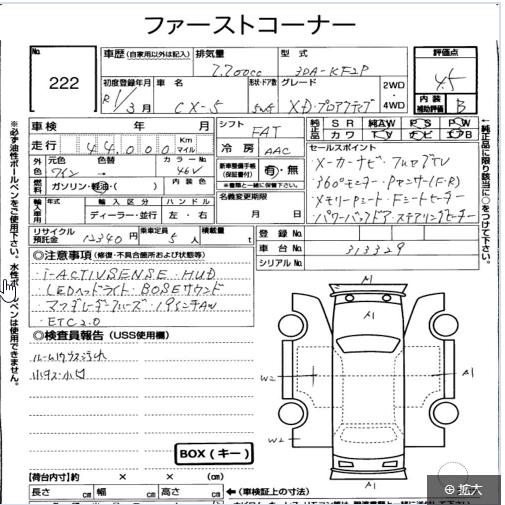 ファーストコーナー
No. 222
車歴 (自家用以外は記入) 排気量 2,200cc 型式 3DA-KF2P
評価点 4.5
内装補助評価 B
初度登録年月 R1/3月 車名 CX-5 形状・ドア数 グレード XD・プロアクティブ 2WD・4WD
車検 年 月
走行 44,000 Km マイル
シフト FAT
冷房 AAC
純正品 SR 純AW PS PW
カワ TV ナビ エアB
外色 元色 ワイン 色替 → カラーNo. 46V
燃料 ガソリン・軽油・( ) 内装色
新車整備手帳 (保証書付) 有・無
※書類と一緒に保管下さい。
セールスポイント
メーカーナビ・フルセグTV
360°モニター・Pセンサー(F・R)
メモリーPシート・Fシートヒーター
パワーバックドア・ステアリングヒーター
輸入車用 年式 輸入区分 ディーラー・並行 ハンドル 左・右
名義変更期限 月 日
リサイクル預託金 12340円 乗車定員 5人 積載量 t
登録No.
車台No. 313329
シリアルNo.
◎注意事項 (修復・不具合箇所および状態等)
・i-ACTIVSENSE・HUD
・LEDヘッドライト・BOSEサウンド
・19インチAW
・ETC2.0
◎検査員報告 (USS使用欄)
ルームハウス汚れ
小キズ・小凹
BOX(キー)
A1
W2
A1
W2
A1
【荷台内寸】約 × × (cm)
長さ cm 幅 cm 高さ cm ←(車検証上の寸法)
※必ず油性ボールペンをご使用下さい。水性ボールペンは使用できません。
←純正品に限り該当に○をつけて下さい。
拡大